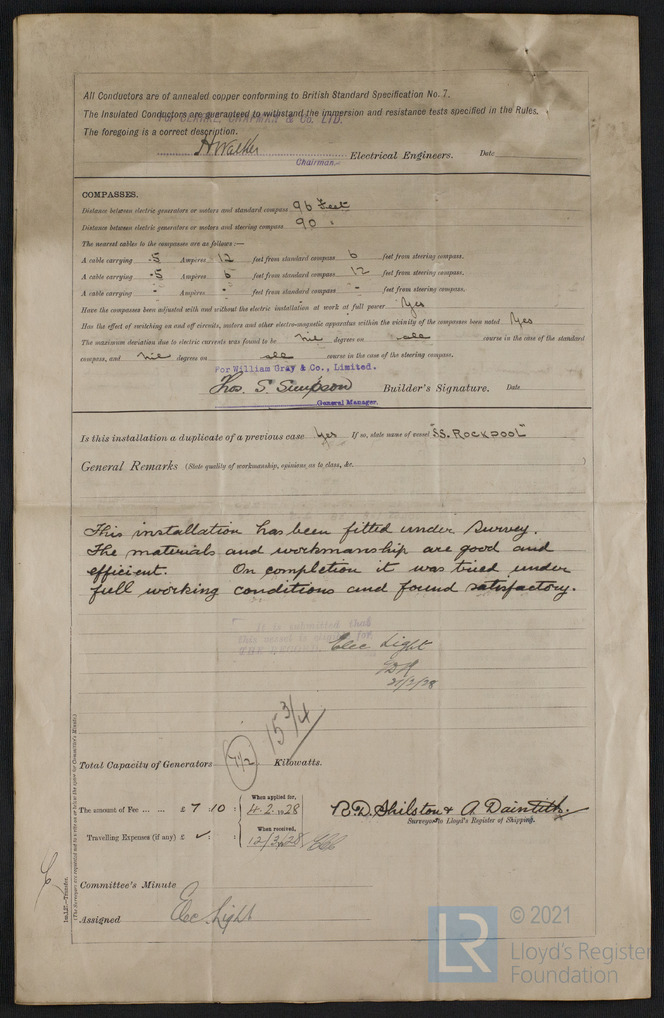 All Conductors are of annealed copper conforming to British Standard Specification No. 7.
The Insulated Conductors are guaranteed to withstand the immersion and resistance tests specified in the Rules.
The foregoing is a correct description.
H Walker Electrical Engineers. Date
Chairman.
COMPASSES.
Distance between electric generators or motors and standard compass 96 Feet
Distance between electric generators or motors and steering compass 90 "
The nearest cables to the compasses are as follows:—
A cable carrying .5 Ampères 12 feet from standard compass 6 feet from steering compass.
A cable carrying .5 Ampères 6 feet from standard compass 12 feet from steering compass.
A cable carrying - Ampères - feet from standard compass - feet from steering compass.
Have the compasses been adjusted with and without the electric installation at work at full power Yes
Has the effect of switching on and off circuits, motors and other electro-magnetic apparatus within the vicinity of the compasses been noted Yes
The maximum deviation due to electric currents was found to be nil degrees on all course in the case of the standard
compass, and nil degrees on all course in the case of the steering compass.
For William Gray & Co., Limited.
Thos. S. Simpson Builder's Signature. Date
General Manager.
Is this installation a duplicate of a previous case Yes If so, state name of vessel "S.S. ROCKPOOL"
General Remarks (State quality of workmanship, opinions as to class, &c.
This installation has been fitted under Survey.
The materials and workmanship are good and
efficient. On completion it was tried under
full working conditions and found satisfactory.
It is submitted that
this vessel is eligible for
THE RECORD.
Elec Light
21/2/28
15 3/4
Total Capacity of Generators 7 1/2 Kilowatts.
The amount of Fee ... ... £ 7 : 10 :
When applied for,
4.2.1928
B.D. Shilston & A. Dainteth.
Surveyor to Lloyd's Register of Shipping.
Travelling Expenses (if any) £ ✓ :
When received,
12/3/28
Committee's Minute
Assigned Elec Light
1m.1.27.—Transfer.
(The Surveyors are requested not to write on or below the space for Committee's Minute.)
LR © 2021
Lloyd's Register
Foundation